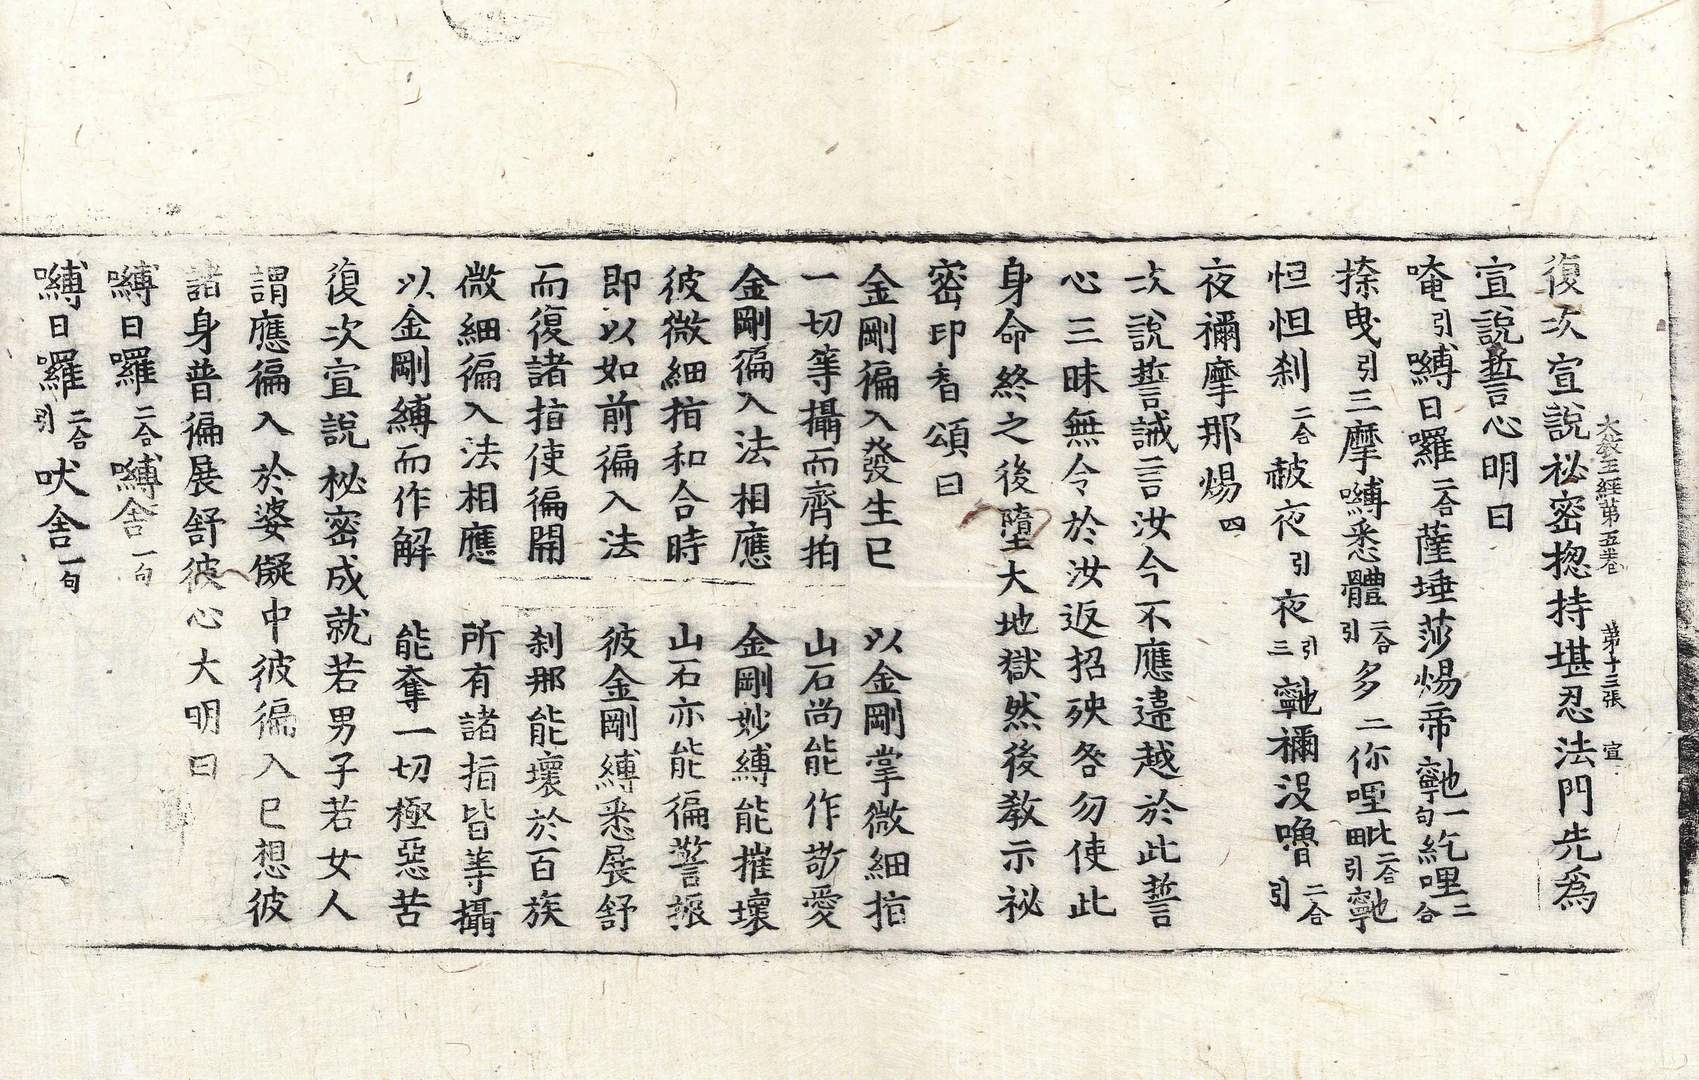 大教王經第五卷 第十三張 宣
復次宣說秘密揔持堪忍法門先爲
宣說誓心明曰
唵引嚩日囉二合薩埵莎煬帝𡫸一句紇哩二合
捺曳引三摩嚩悉體二合引多二你哩毗二合𤰞引𡫸
怛怛刹二合赦夜引夜引三𡫸禰没嚕二合引
夜禰摩那煬四
次說誓誡言汝今不應違越於此誓
心三昧無令於汝返招殃咎勿使此
身命終之後墮大地獄然後教示祕
密印智頌曰
金剛徧入發生已 以金剛掌微細指
一切等攝而齊拍 山石尚能作敬愛
金剛徧入法相應 金剛妙縛能摧壞
彼微細指和合時 山石亦能徧警振
即以如前徧入法 彼金剛縛悉展舒
而復諸指使徧開 刹那能壞於百族
微細徧入法相應 所有諸指皆等攝
以金剛縛而作解 能奪一切極惡苦
復次宣說秘密成就若男子若女人
謂應徧入於婆儗中彼徧入已想彼
諸身普徧展舒彼心大明曰
嚩日囉二合嚩舍一句
嚩日囉二合引吠舍一句